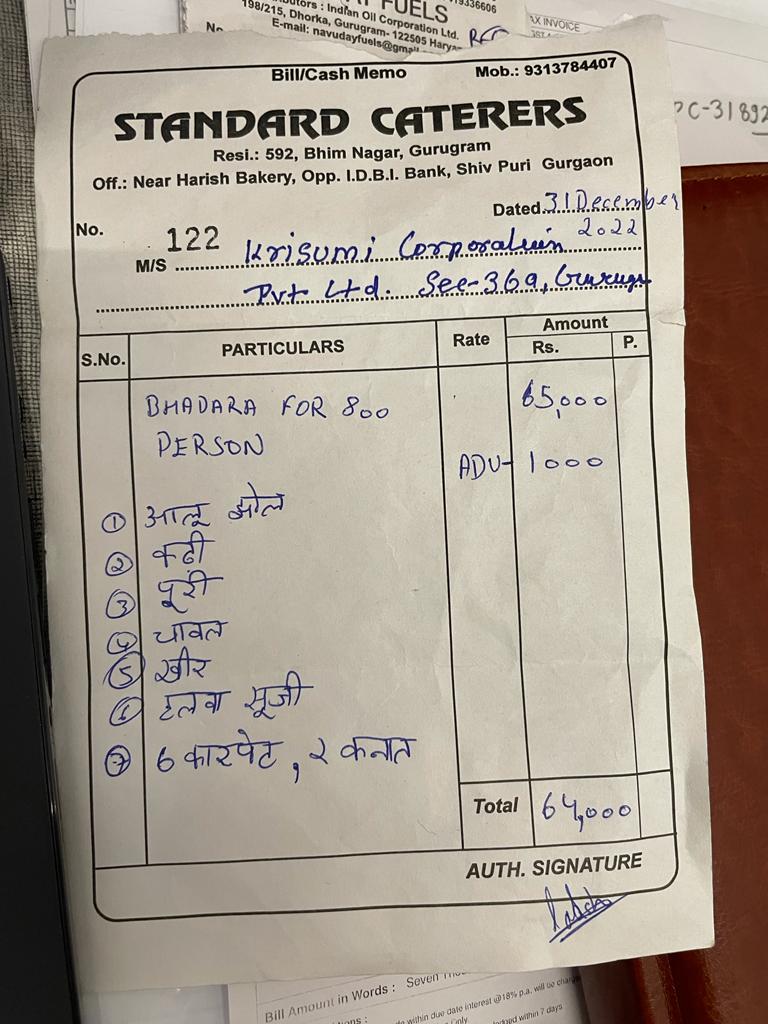 19336606
FUELS
AX INVOICE
butors : Indian Oil Corporation Ltd.
198/215, Dhorka, Gurugram- 122505 Harya
E-mail: navudayfuels@gmail
No.
PC-31892
Bill/Cash Memo Mob.: 9313784407
STANDARD CATERERS
Resi.: 592, Bhim Nagar, Gurugram
Off.: Near Harish Bakery, Opp. I.D.B.I. Bank, Shiv Puri Gurgaon
Dated 31 December
2022
No. 122
M/S Krisumi Corporation
Pvt Ltd. Sec-36a, Gurugr
S.No. PARTICULARS Rate Amount
Rs. P.
BHADARA FOR 800 65,000
PERSON
ADV- 1000
① आलू झोल
② कढी
③ पूरी
④ चावल
⑤ खीर
⑥ हलवा सूजी
⑦ 6 कारपेट, २ कनात
Total 64,000
AUTH. SIGNATURE
Bill Amount in Words : Seven
within due date interest @18% p.a. will be charg
only.
dged within 7 days